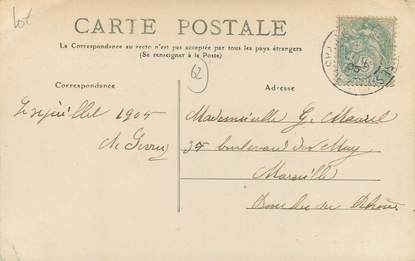 lot
CARTE POSTALE
La Correspondance au recto n'est pas acceptée par tous les pays étrangers
(Se renseigner à la Poste)
62
Correspondance
Adresse
Le juillet 1905
Mademoiselle G. Maurel
boulevard du Muy
Marseille
Bouches du Rhône